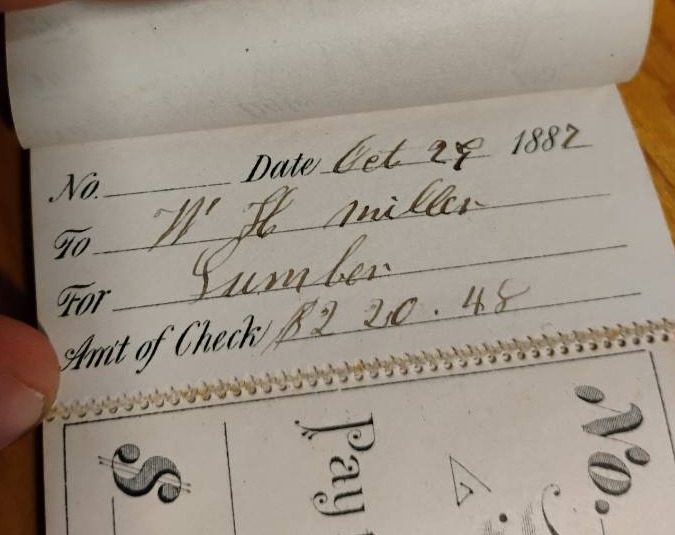 No. Date Oct 29 1882
To W H Miller
For Lumber
Amt of Check $220.48
$ Pay No.